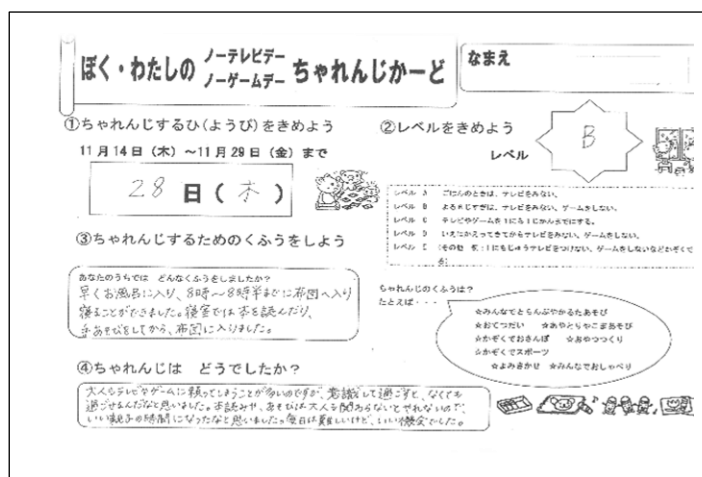 ぼく・わたしの ノーテレビデー ノーゲームデー ちゃれんじかーど
なまえ
①ちゃれんじするひ(ようび)をきめよう
11月14日(木)~11月29日(金)まで
28日(木)
②レベルをきめよう
レベル B
レベル A ごはんのときは、テレビをみない。
レベル B よる8じすぎは、テレビをみない、ゲームをしない。
レベル C テレビやゲームを1にち1じかんまでにする。
レベル D いえにかえってきてからテレビをみない、ゲームをしない。
レベル E (その他 例:1にちじゅうテレビをつけない、ゲームをしないなどかぞくで
③ちゃれんじするためのくふうをしよう
あなたのうちでは どんなくふうをしましたか?
早くお風呂に入り、8時~8時半までに布団へ入り
寝ることができました。寝室では本を読んだり、
手あそびをしてから、布団に入りました。
ちゃれんじのくふうは?
たとえば・・・
☆みんなでとらんぷやかるたあそび
☆おてつだい ☆あやとりやこまあそび
☆かぞくでおさんぽ ☆おやつつくり
☆かぞくでスポーツ
☆よみきかせ ☆みんなでおしゃべり
④ちゃれんじは どうでしたか?
大人もテレビやゲームに頼ってしまうことが多いのですが、意識して過ごすと、なくても
過ごせるんだなと思いました。本読みや、あそびは大人も関わらないとやれないので、
いい親子の時間になったなと思いました。毎日は難しいけど、いい機会でした。